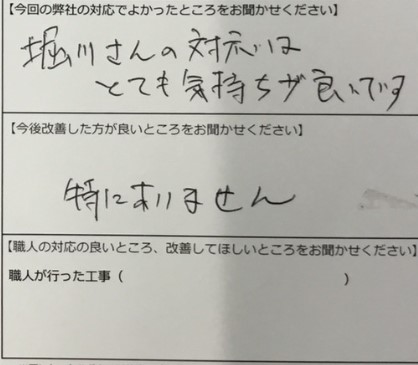 【今回の弊社の対応でよかったところをお聞かせください】
堀川さんの対応は
とても気持ちが良いです
【今後改善した方が良いところをお聞かせください】
特にありません
【職人の対応の良いところ、改善してほしいところをお聞かせください】
職人が行った工事（　　　　　　　　　　）